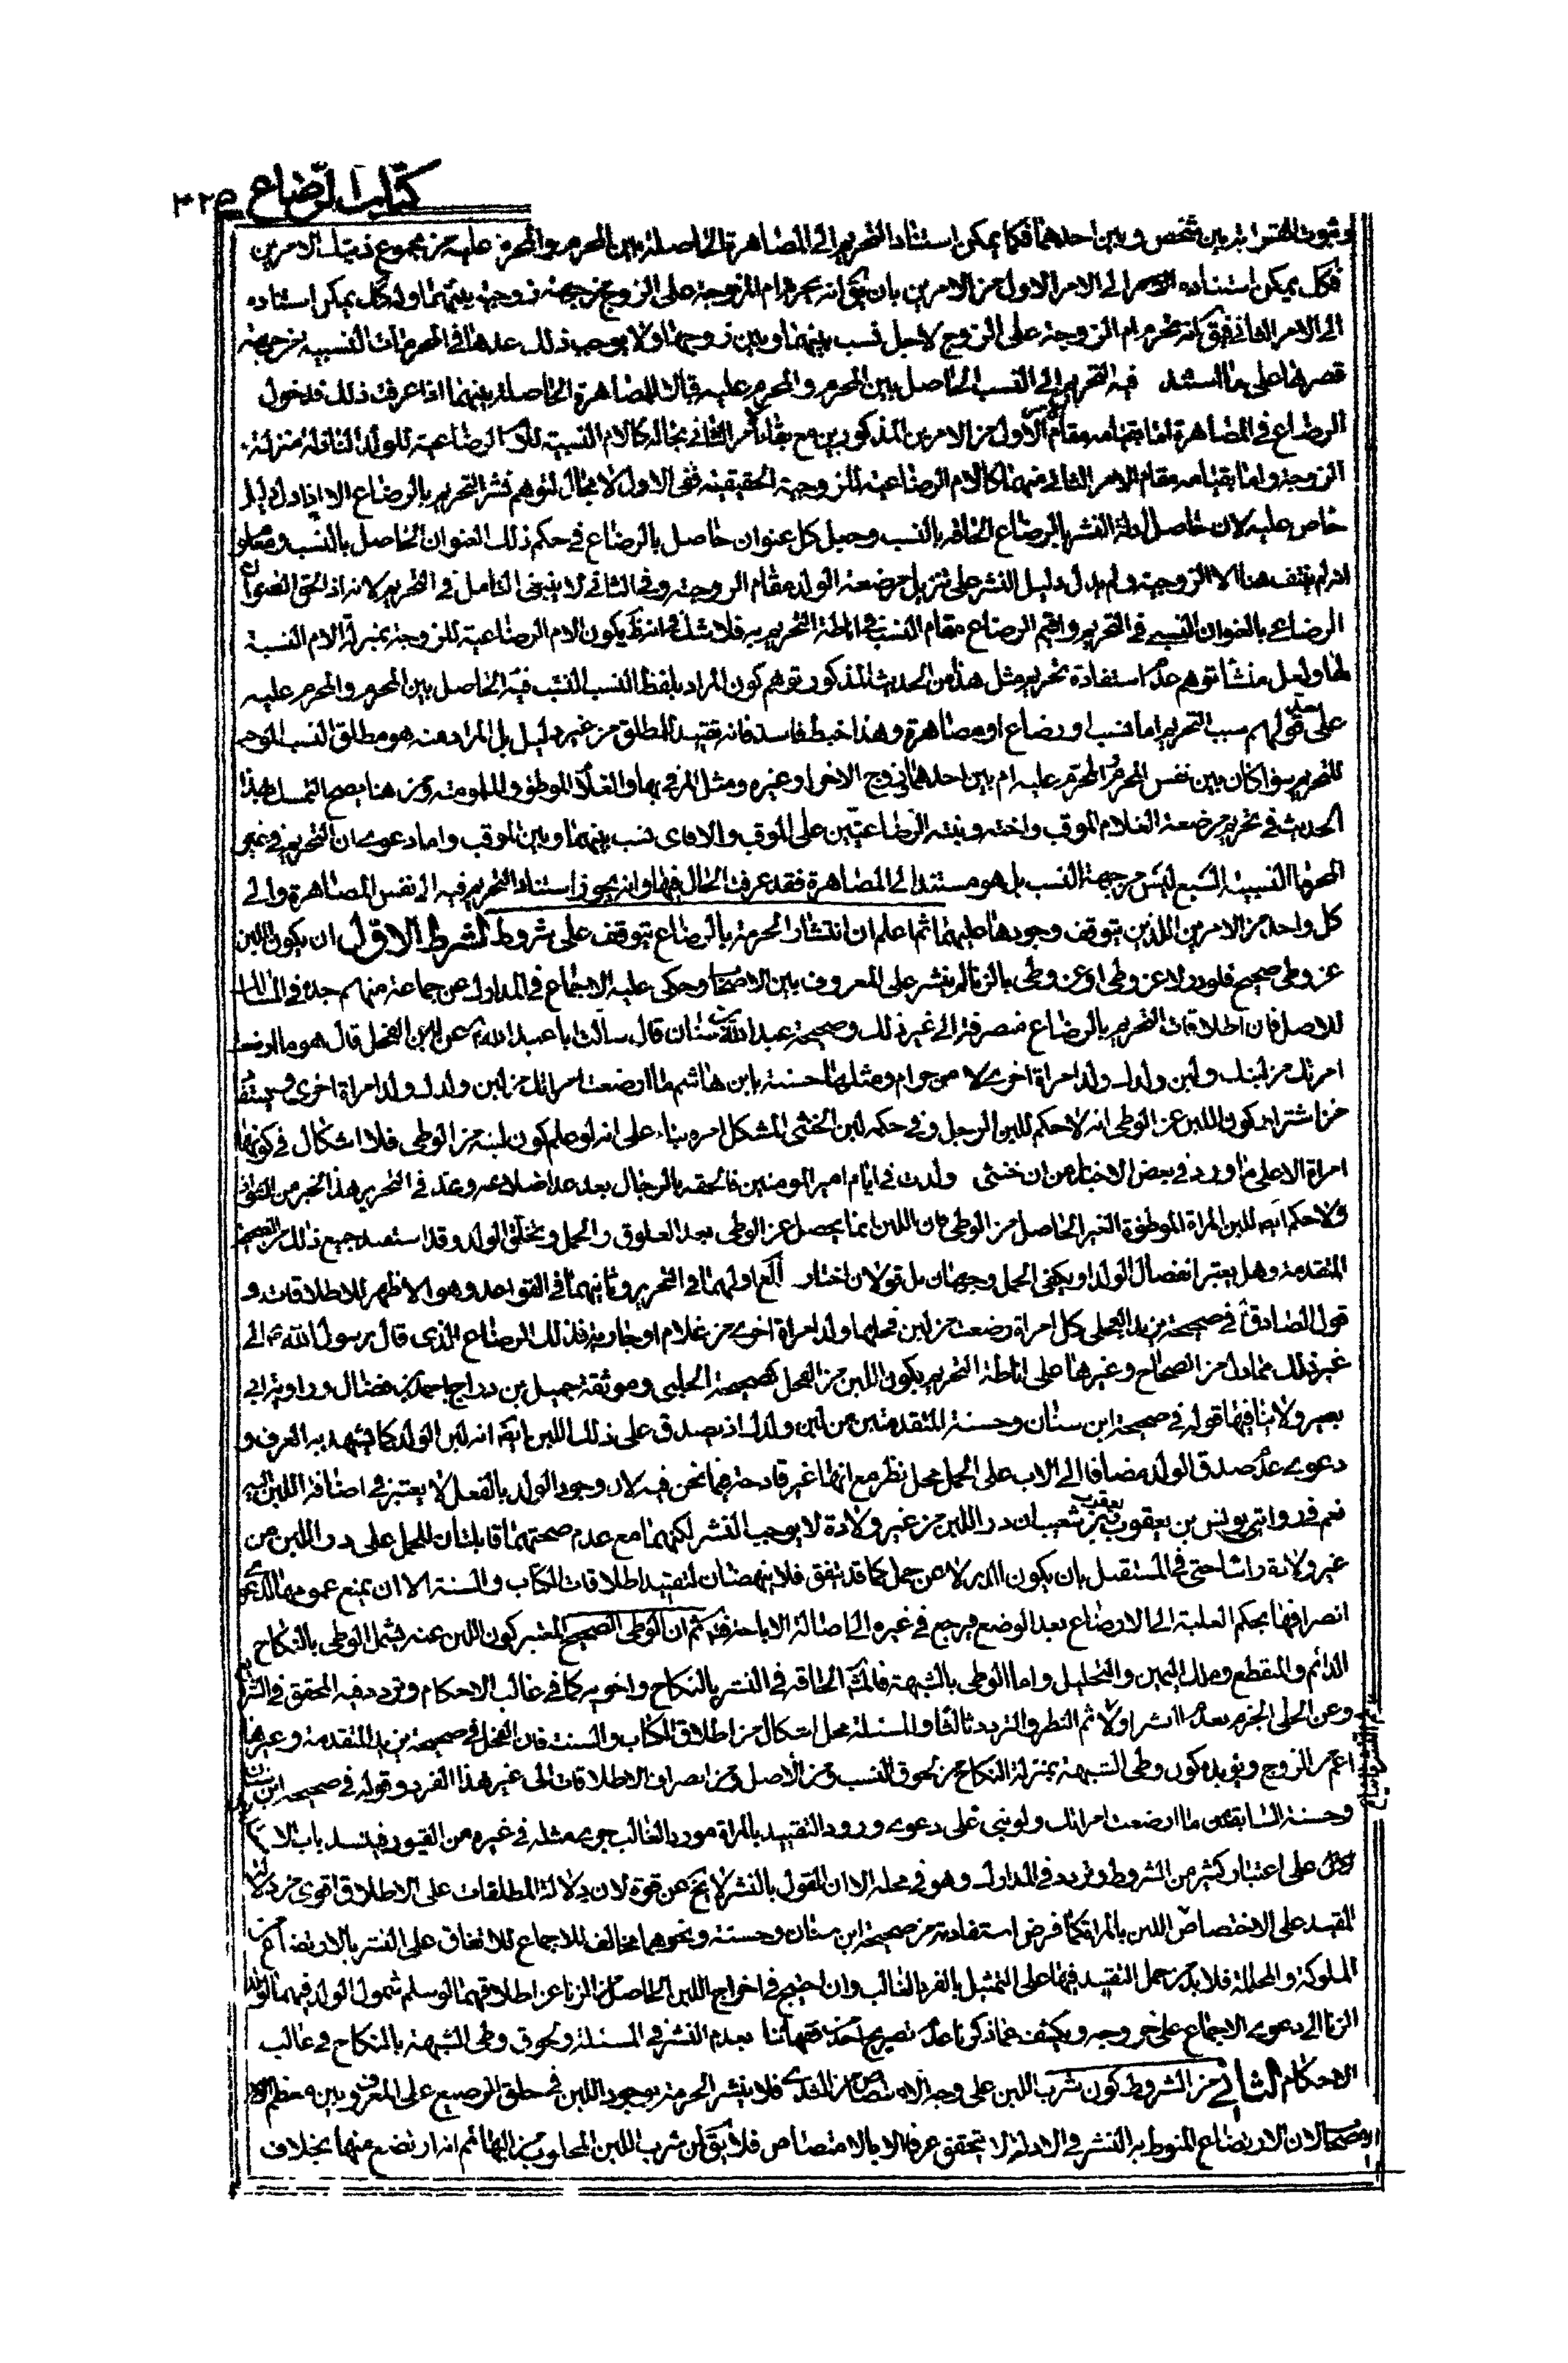 كتاب الرضاع ٣٢٥
وثبوت القرابة بين شخص وبين احدهما فكما يمكن استناد التحريم الى المصاهرة الحاصلة بين المحرم والمحرم عليه من مجموع ذينك الامرين
فكل يمكن استناده الى الامر الاول من الامرين بان يق انه يحرم ام الزوجة على الزوج من جهة زوجية بينهما وكل يمكن استناده
الى الامر الثانى فيق انه تحرم ام الزوجة على الزوج لاجل نسب بينها وبين زوجها ولا يوجب ذلك عدها فى المحرمات النسبية من جهة
قصرها على ما استند فيه التحريم الى النسب الحاصل بين المحرم والمحرم عليه المصاهرة الحاصلة بينهما اذا عرفت ذلك فدخول
الرضاع فى المصاهرة اما بقيامه مقام الاول من الامرين المذكورين مع بقاء الامر الثانى بحاله كالام النسبية للولد النازلة منزلة
الزوجة واما بقيامه مقام الامر الثانى منهما كالام الرضاعية للزوجة الحقيقية ففى الاول لا مجال لتوهم نشر التحريم بالرضاع الا اذا دل دليل
خاص عليه لان حاصل ادلة النشر بالرضاع الحاقه بالنسب وجعل كل عنوان حاصل بالرضاع فى حكم ذلك العنوان الحاصل بالنسب ومعلوم
انه لم ينتف هنا الا الزوجية ولم يدل دليل النشر على تنزيل مرضعة الولد مقام الزوجة وفى الثانى لا ينبغى التامل فى التحريم لانه اذ الحق العنوان
الرضاعى بالعنوان النسبى فى التحريم واقيم الرضاع مقام النسب فى اناطة التحريم به فلا شك فى انه يكون الام الرضاعية للزوجة بمنزلة الام النسبية
لها ولعل منشا توهم عدم استفادة تحريم مثل هذا من الحديث المذكور توهم كون المراد بلفظ النسب النسب الحاصل بين المحرم والمحرم عليه
على قولهم سبب التحريم اما نسب او رضاع او مصاهرة وهذا خبط فاسد فانه تقييد للمطلق من غير دليل بل المراد منه هو مطلق النسب الموجب
للتحريم سواء كان بين نفس المحرم والمحرم عليه ام بين احدهما وزوج الاخر او غيره ومثل المزنى بها والغلام الموطؤ والملموسة ومن هنا يصح التمسك بهذا
الحديث فى تحريم مرضعة الغلام الموقب واخته وبنته الرضاعيتين على الموقب والا فاى نسب بينها وبين الموقب واما دعوى ان التحريم فى غير
المحرمات النسبية السبع ليس من جهة النسب بل هو مستند الى المصاهرة فقد عرفت الحال فيها وانه يجوز استناد التحريم فيه الى نفس المصاهرة والى
كل واحد من الامرين اللذين يتوقف وجودها عليهما ثم اعلم ان انتشار الحرمة بالرضاع يتوقف على شروط الشرط الاول ان يكون اللبن
عن وطى صحيح فلو در لا عن وطى او عن وطى بالزنا لم ينشر على المعروف بين الاصحاب وحكى عليه الاجماع فى المدارك عن جماعة منهم جده فى المسالك
للاصل فان اطلاقات التحريم بالرضاع منصرفة الى غير ذلك وصحيحة عبد الله بن سنان قال سالت ابا عبد الله عن لبن الفحل قال هو ما ارضعت
امرئتك من لبنك ولبن ولدك ولد امراة اخرى لا من حرام ومثلها حسنة بابن هاشم ما ارضعت امرائتك من لبن ولدك ولد امراة اخرى ويستفاد
من اشتراط كون اللبن عن الوطى انه لا حكم للبن الرجل وفى حكمه لبن الخنثى المشكل امره بناء على انه لو علم كون لبنه من الوطى فلا اشكال فى كونها
امراة الا على ما ورد فى بعض الاخبار من ان خنثى ولدت فى ايام امير المومنين فالحقه بالرجال بعد عد اضلاعه وعد فى التحرير هذا الخبر من
ولا حكم ايضا للبن المراة الموطؤة الغير الحاصل من الوطى فان اللبن انما يحصل عن الوطى بعد العلوق والحمل وتخلق الولد وقد استفيد جميع ذلك من الصحيحة
المتقدمة وهل يعتبر انفصال الولد او يكفى الحمل وجهان بل قولان اختار اولهما فى التحرير وثانيهما فى القواعد وهو الاظهر للاطلاقات و
قول الصادق فى صحيحة بريد العجلى كل امراة رضعت من لبن فحلها ولد امراة اخرى من غلام او جارية فذلك الرضاع الذى قال رسول الله الى
غير ذلك مما دل من الصحاح وغيرها على اناطة التحريم بكون اللبن من الفحل كصحيحة الحلبى وموثقة جميل بن دراج باحمد بن فضال ورواية ابى
بصير ولا ينافيها قوله فى صحيحة ابن سنان وحسنته المتقدمتين من لبن ولدك اذ يصدق على ذلك اللبن انه لبن الولد كما يشهد به العرف و
دعوى عدم صدق الولد مضافا الى الاب على الحمل محل نظر مع انها غير قادحة فيما نحن فيه لان وجود الولد بالفعل لا يعتبر فى اضافة اللبن اليه
نعم فى روايتى يونس بن يعقوب ويعقوب بن شعيب ان در اللبن من غير ولادة لا يوجب النشر لكنهما مع عدم صحتهما قابلتان للحمل على در اللبن من
غير ولادة راسا حتى فى المستقبل بان يكون الدر لا عن حمل كما قد يتفق فلا ينهضان لتقييد اطلاقات الكتاب والسنة الا ان يمنع عمومها لدعوى
انصرافها بحكم الغلبة الى الارضاع بعد الوضع فيرجع فى غيره الى اصالة الاباحة ثم ان الوطى الصحيح المعتبر كون اللبن عنه يشمل الوطى بالنكاح
الدائم والمنقطع وملك اليمين والتحليل واما الوطى بالشبهة فالمشهور الحاقه فى النشر بالنكاح واخويه كما فى غالب الاحكام وتردد فيه المحقق فى الشرايع
وعن الحلى الجزم بعدم النشر اولا ثم النظر والتردد ثالثا والمسئلة محل اشكال من اطلاق الكتاب والسنة فان الفحل فى صحيحة بريد المتقدمة وغيرها
اعم من الزوج ويؤيده كون وطى الشبهة بمنزلة النكاح من لحوق النسب ومن الاصل ومن انصراف الاطلاقات الى غير هذا الفرد وقوله فى صحيحة ابن سنان
وحسنته السابقتين ما ارضعت امرائتك ولو بنى على دعوى ورود التقييد بالمراة مورد الغالب جرى مثله فى غيره من القيود فينسد باب الا
على اعتبار كثير من الشروط وتردد فى المدارك وهو فى محله الا ان القول بالنشر لا يخ عن قوة لان دلالة المطلقات على الاطلاق اقوى من دلالة
المقيد على الاختصاص اللبن بالمراة كما فرض استفادته من صحيحة ابن سنان وحسنته ونحوهما مخالف للاجماع للاتفاق على النشر بالارتضاع من
المملوكة والمحللة فلا بد من حمل التقييد فيها على التمثيل بالفرد الغالب وان احتيج فى اخراج اللبن الحاصل من الزنا عن اطلاقهما لو سلم شمول الولد فيهما لولد
الزنا الى دعوى الاجماع على خروجه ويكشف عما ذكرنا عدم تصريح احد من فقهائنا بعدم النشر فى المسئلة ولحوق وطى الشبهة بالنكاح فى غالب
الاحكام الثانى من الشروط كون شرب اللبن على وجه الامتصاص من الثدى فلا ينشر الحرمة بوجود اللبن فى حلق الرضيع على المعروف بين معظم الا
صحاب لان الارتضاع المنوط به النشر فى الادلة لا يتحقق عرفا الا بالامتصاص فلا يق لمن شرب اللبن المحلوب من البهائم انه ارتضع منها بخلاف